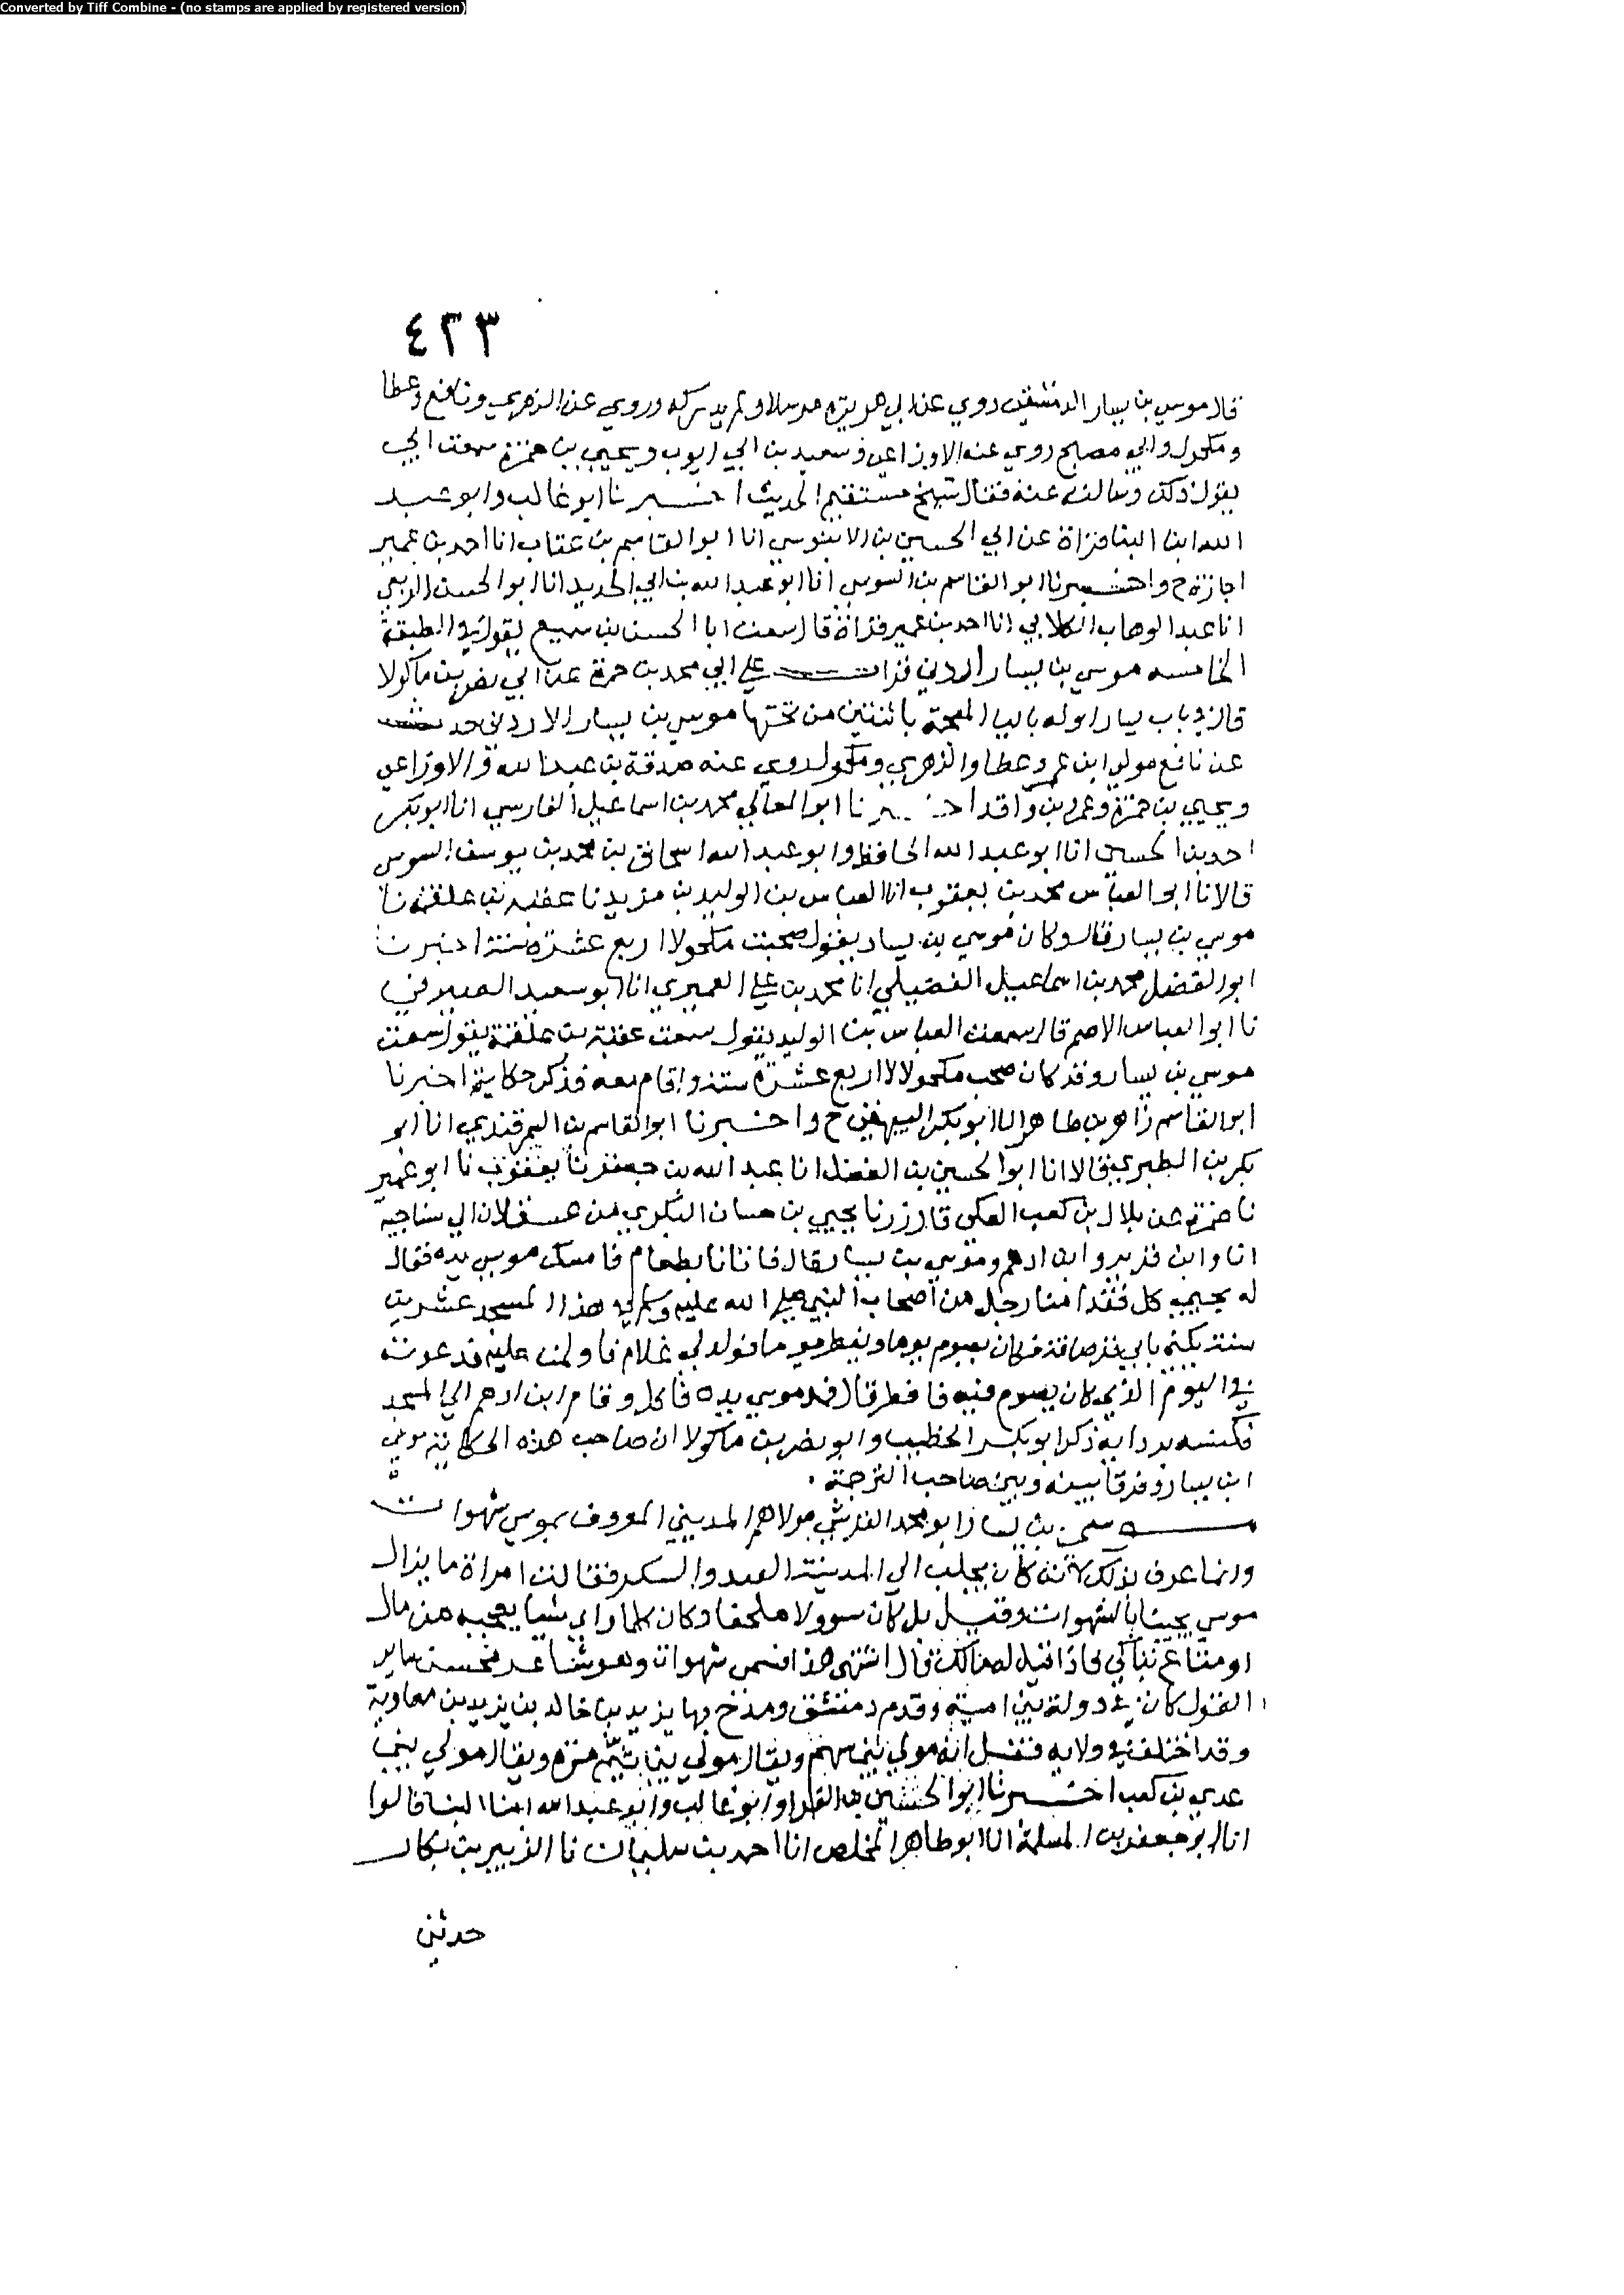 Converted by Tiff Combine - (no stamps are applied by registered version)
٤٢٣
قال موسى بن يسار الدمشقي روي عن ابي هريرة مرسلا ولم يدركه وروي عن الزهري ونافع وعطا
ومكحول وابي مصبح روي عنه الاوزاعي وسعيد بن ابي ايوب ويحيي بن حمزة سمعت ابي
يقول ذلك وسالته عنه فقال شيخ مستقيم الحديث اخبرنا ابو غالب وابو عبد
الله ابنا البنا قراة عن ابي الحسين بن الابنوسي انا ابو القاسم بن عتاب انا احمد بن عمير
اجازة ح واخبرنا ابو القاسم بن السوسي انا ابو عبد الله بن ابي الحديد انا ابو الحسن الربعي
انا عبد الوهاب الكلابي انا احمد بن عمير قراة قال سمعت ابا الحسن بن سميع يقول في الطبقة
الخامسه موسي بن يسار اردني قرات علي ابي محمد بن حمزة عن ابي نصر بن ماكولا
قال في باب يسار اوله باليا المعجمة باثنتين من تحتها موسي بن يسار الاردني حدث
عن نافع مولي ابن عمر وعطا والزهري ومكحول روي عنه صدقة بن عبد الله والاوزاعي
ويحيي بن حمزة وعمر بن واقد اخبرنا ابو المعالي محمد بن اسماعيل الفارسي انا ابو بكر
احمد بن الحسين انا ابو عبد الله الحافظ وابو عبد الله اسحاق بن محمد بن يوسف السوسي
قالا نا ابو العباس محمد بن يعقوب انا العباس بن الوليد بن مزيد نا عقبه بن علقمة نا
موسي بن يسار قال وكان موسي بن يسار يقول صحبت مكحولا اربع عشرة سنة اخبرنا
ابو الفضل محمد بن اسماعيل الفضيلي انا محمد بن علي العميري انا ابو سعيد الصيرفي
نا ابو العباس الاصم قال سمعت العباس بن الوليد يقول سمعت عقبة بن علقمة يقول سمعت
موسي بن يسار وقد كان صحب مكحولا اربع عشرة سنة واقام معه فذكر حكاية اخبرنا
ابو القاسم زاهر بن طاهر انا ابو بكر البيهقي ح واخبرنا ابو القاسم بن السمرقندي انا ابو
بكر بن الطبري قالا انا ابو الحسين بن الفضل انا عبد الله بن جعفر نا يعقوب نا ابو عمير
نا ضمرة عن بلال بن كعب العكي قال زرنا يحيي بن حسان البكري من عسقلان الي سناجيه
انا وابن قرير وابن ادهم وموسي بن يسار قال فاتانا بطعام فامسك موسي يده فقال
له يحيي كل فقد امنا رجل من اصحاب النبي صلي الله عليه وسلم في هذا المسجد عشرين
سنة يكني بابي قرصافة فكان يصوم يوما ويفطر يوما فولد لي غلام فاولمت عليه فدعوته
في اليوم الذي كان يصوم فيه فافطر قال فمد موسي يده فاكل وقام ابن ادهم الي المسجد
فكنسه بردايه ذكر ابو بكر الخطيب وابو نصر بن ماكولا ان صاحب هذه الحكاية موسي
ابن يسار وفرقا بينه وبين صاحب الترجمة
موسي بن يسار ابو محمد القرشي مولاهم المديني المعروف بموسي شهوات
وانما عرف بذلك لانه كان يجلب الي المدينة القند والسكر فقالت امراة ما يزال
موسي يجينا بالشهوات وقيل بل كان سوولا ملحفا وكان كلما راي شيا يعجبه من مال
او متاع تباكي فاذا قيل له مالك قال اشتهي هذا فسمي شهوات وهو شاعر محسن ساير
القول كان في دولة بني امية وقدم دمشق ومدح بها يزيد بن خالد بن يزيد بن معاوية
وقد اختلف في ولايه فقيل انه مولي بني سهم ويقال مولي بني تيم بن مرة ويقال مولي بني
عدي بن كعب اخبرنا ابو الحسين بن الفرا وابو غالب وابو عبد الله ابنا البنا قالوا
انا ابو جعفر بن المسلمة انا ابو طاهر المخلص انا احمد بن سليمان نا الزبير بن بكار
حدثني